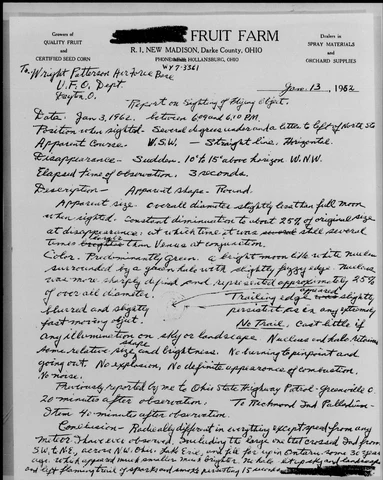 Growers of
QUALITY FRUIT
and
CERTIFIED SEED CORN
FRUIT FARM
R. 1, NEW MADISON, Darke County, OHIO
PHONE HOLLANSBURG, OHIO
WY 7-3361
Dealers in
SPRAY MATERIALS
and
ORCHARD SUPPLIES
Jan. 13, 1962
To, Wright Patterson Air Force Base
U.F.O. Dept.
Dayton, O.
Report on Sighting of Flying Object.
Date: Jan 3, 1962. between 6:09 and 6:10 P.M.
Position when sighted - Several degrees under and a little to left of North Star
Apparent Course. W.S.W. - Straight line, Horizontal
Disappearance - Sudden. 10° to 15° above horizon W.N.W.
Elapsed time of observation. 3 seconds.
Description - Apparent shape - Round.
Apparent size overall diameter slightly less than full moon
when sighted. Constant diminution to about 25% of original size
at disappearance, at which time it was still several
times than Venus at conjunction.
Color. Predominantly Green. a bright moon like white nucleus
surrounded by a green halo with slightly fuzzy edge. Nucleus
was more sharply defined and represented approximately 25%
of overall diameter. Trailing edge appeared slightly
blurred and slightly persistent as in any extremely
fast moving object. No Trail. Cast little if
any illumination on sky or landscape Nucleus and halo retained
same relative size and brightness. No burning to pinpoint and
going out. No explosion, No definite appearance of combustion.
No noise.
Previously reported by me to Ohio State Highway Patrol - Greenville O.
20 minutes after observation. To Richmond Ind Palladium-
Item 40 minutes after observation.
Conclusion - Radically different in everything except speed from any
meteor I have ever observed, Including the large one that crossed Ind from
S.W. to N.E., across N.W. Ohio, Lake Erie, and fell far up in Ontario some 30 years
ago. which appeared much smaller much brighter No halo lit up sky and landscape
and left flaming trail of sparks and smoke persisting 15 seconds